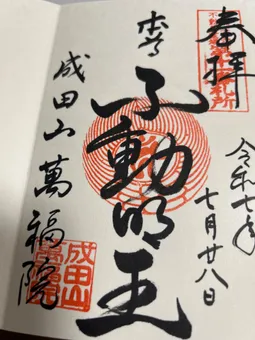 奉拝
令和七年
七月廿八日
本尊
不動明王
成田山萬福院
成田山
萬福院